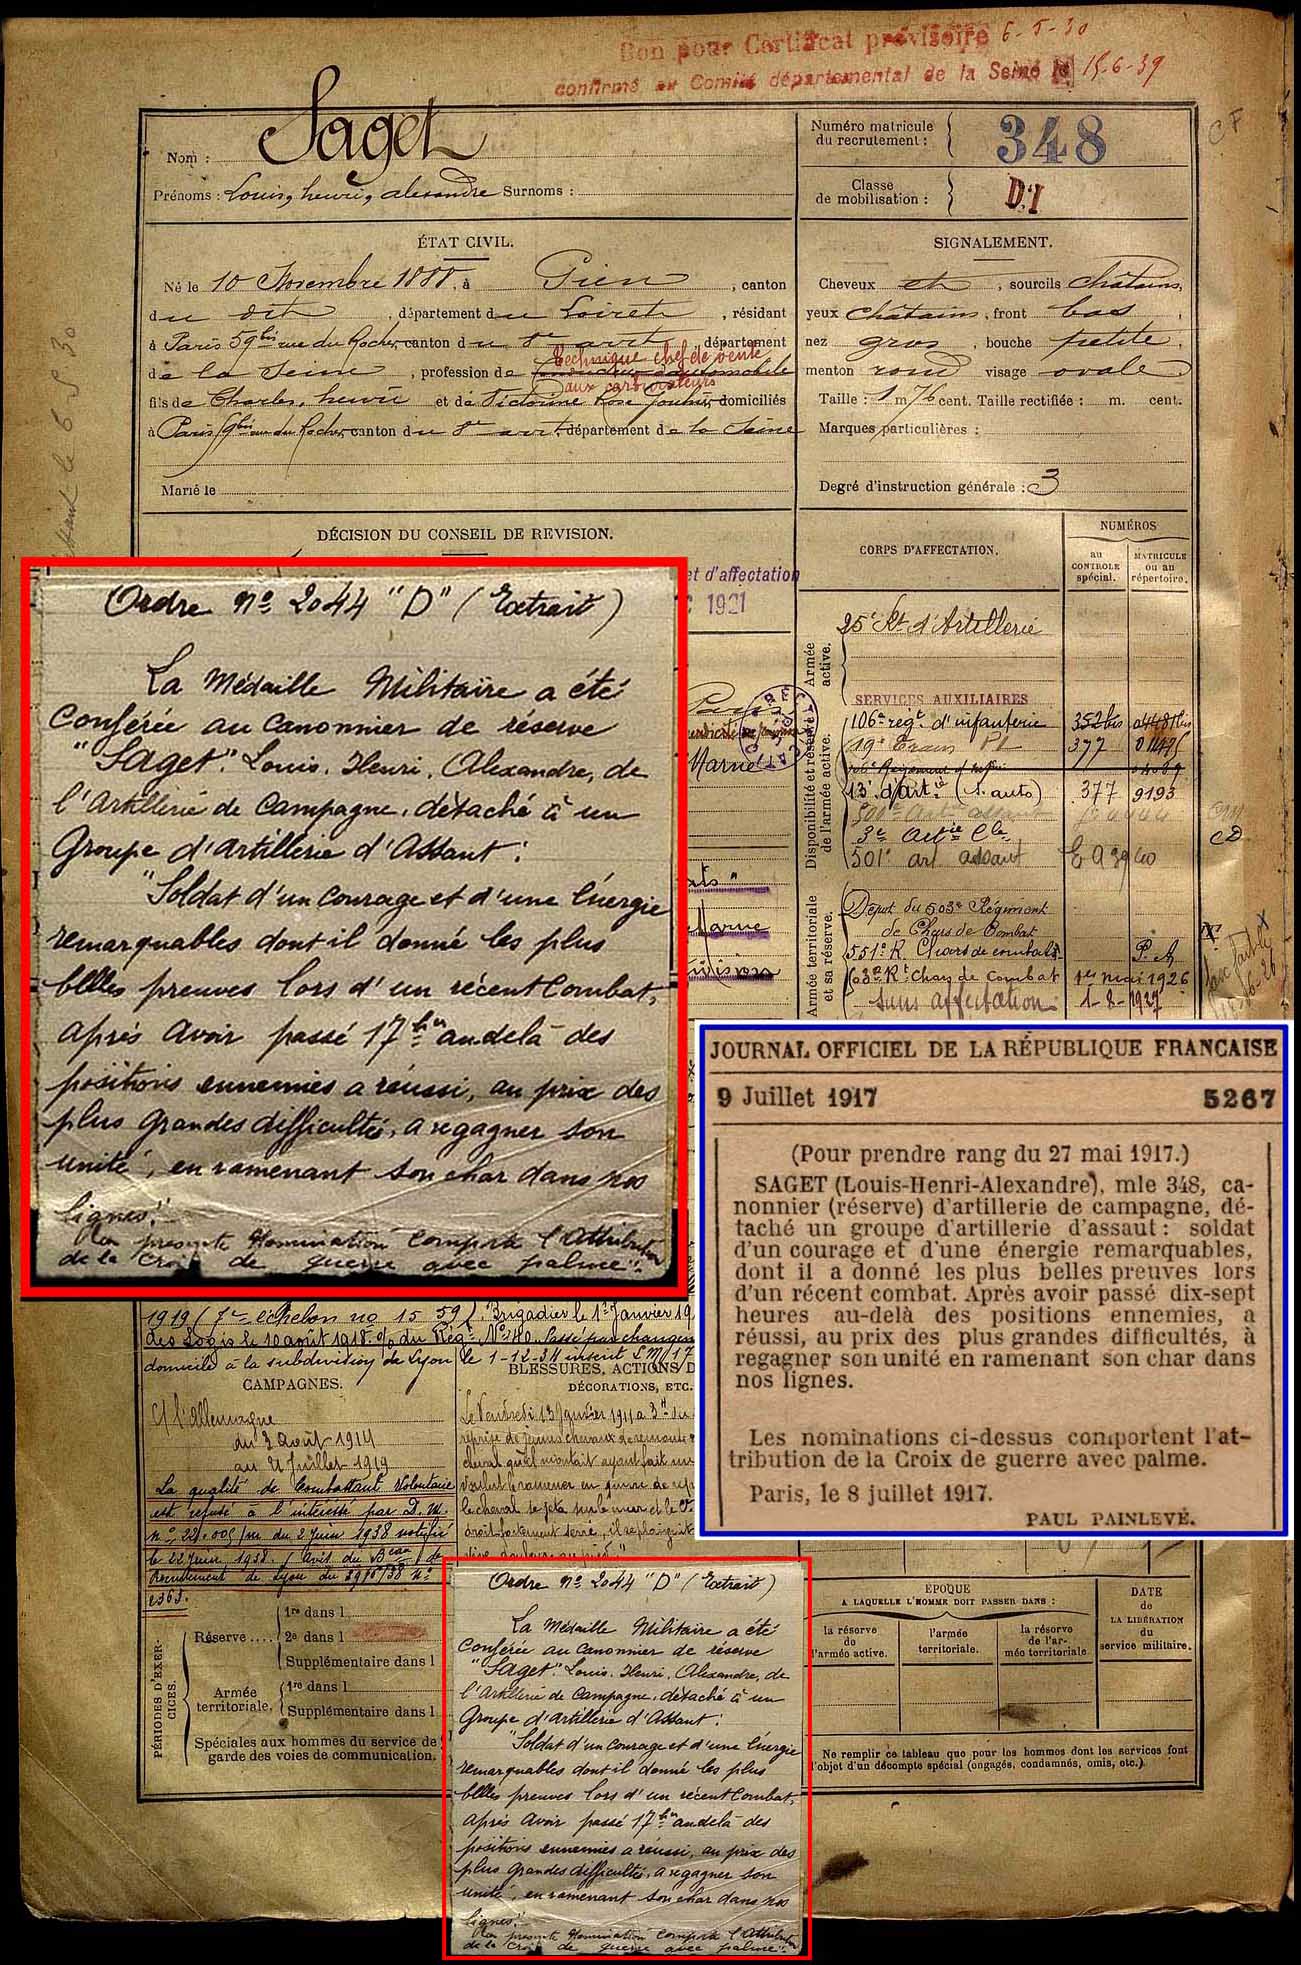 Bon pour Certificat provisoire 6-5-30
confirmé au Comité départemental de la Seine le 15-6-39
Nom : Saget
Prénoms : Louis, henri, alexandre Surnoms :
Numéro matricule
du recrutement : 348
Classe
de mobilisation : D.I
C F
ÉTAT CIVIL.
Né le 10 Novembre 1888, à Gien, canton
du dit, département du Loiret, résidant
à Paris 59bis rue du Rocher, canton du 8e arrt, département
technique chef de vente
de la Seine, profession de Conducteur automobile
aux carburateurs
fils de Charles, henri et de Victorine Rose domiciliés
à Paris 59bis rue du Rocher, canton du 8e arrt, département de la Seine
Marié le
SIGNALEMENT.
Cheveux et, sourcils châtains,
yeux châtains, front bas,
nez gros, bouche petite,
menton rond visage ovale
Taille : 1 m 76 cent. Taille rectifiée : m. cent.
Marques particulières :
Degré d'instruction générale : 3
DÉCISION DU CONSEIL DE REVISION.
et d'affectation
1921
Paris
Marne
Marne
CORPS D'AFFECTATION.
NUMÉROS
au
CONTROLE
spécial.
MATRICULE
ou au
répertoire.
Armée
active.
25e Rt d'Artillerie
SERVICES AUXILIAIRES
Disponibilité et réserve
de l'armée active.
106e regt d'infanterie 352bis
19e Train 377
13e d'artie (s. auto) 377 9193
3e Artie Cle
501e art assaut
CD
Armée territoriale
et sa réserve.
Dépot du 503e Régiment
de Chars de Combat
551e R. Chars de combats P. A
503e Rt Chars de Combat 1er mai 1926
Sans affectation 1-8-1927
Ordre No 2044 "D" (Extrait)
La Médaille Militaire a été
Conférée au canonnier de réserve
"Saget". Louis. Henri. Alexandre, de
l'Artillerie de Campagne, détaché à un
Groupe d'Artillerie d'Assaut :
"Soldat d'un courage et d'une énergie
remarquables dont il donné les plus
belles preuves lors d'un récent Combat,
après avoir passé 17 hres au delà des
positions ennemies a réussi, au prix des
plus grandes difficultés, a regagner son
unité, en ramenant son char dans nos
lignes."
La présente Nomination comporte l'attribution
de la Croix de guerre avec palme".
JOURNAL OFFICIEL DE LA RÉPUBLIQUE FRANCAISE
9 Juillet 1917 5267
(Pour prendre rang du 27 mai 1917.)
SAGET (Louis-Henri-Alexandre), mle 348, ca-
nonnier (réserve) d'artillerie de campagne, dé-
taché un groupe d'artillerie d'assaut : soldat
d'un courage et d'une énergie remarquables,
dont il a donné les plus belles preuves lors
d'un récent combat. Après avoir passé dix-sept
heures au-delà des positions ennemies, a
réussi, au prix des plus grandes difficultés, à
regagner son unité en ramenant son char dans
nos lignes.
Les nominations ci-dessus comportent l'at-
tribution de la Croix de guerre avec palme.
Paris, le 8 juillet 1917.
PAUL PAINLEVÉ.
1919 (7e échelon no 15 59). Brigadier le 1er Janvier 19
des Logis le 10 août 1918. du Rég. No 40. Passé par changement
domicile à la subdivision de Lyon le 1-12-34
CAMPAGNES.
C/ l'Allemagne
du 3 août 1914
au 21 Juillet 1919
La qualité de Combattant Volontaire
est refusé à l'intéressé par D. M.
no 22.005/m du 2 Juin 1938 notifié
le 22 Juin 1938. (avis du Beau de
Recrutement de Lyon du 29/6/38 no
2363.
BLESSURES, ACTIONS D
DÉCORATIONS, ETC.
Le Vendredi 13 Janvier 1911 a
reprise de jeunes chevaux de remonte
cheval qu'il montait ayant fait un
le cheval se jeta sur le mur et le
droit fortement serré,
PÉRIODES D'EXER-
CICES.
Réserve .... 1re dans l
2e dans l
Supplémentaire dans l
Armée
territoriale. 1re dans l
Supplémentaire dans l
Spéciales aux hommes du service de
garde des voies de communication.
Ordre No 2044 "D" (Extrait)
La Médaille Militaire a été
Conférée au canonnier de réserve
"Saget". Louis. Henri. Alexandre, de
l'Artillerie de Campagne, détaché à un
Groupe d'Artillerie d'Assaut :
"Soldat d'un courage et d'une énergie
remarquables dont il donné les plus
belles preuves lors d'un récent Combat,
après avoir passé 17 hres au delà des
positions ennemies a réussi, au prix des
plus grandes difficultés, a regagner son
unité, en ramenant son char dans nos
lignes."
La présente Nomination comporte l'attribution
de la Croix de guerre avec palme".
ÉPOQUE
A LAQUELLE L'HOMME DOIT PASSER DANS :
la réserve
de
l'armée active.
l'armée
territoriale.
la réserve
de l'ar-
mée territoriale.
DATE
de
LA LIBÉRATION
du
service militaire.
Ne remplir ce tableau que pour les hommes dont les services font
l'objet d'un décompte spécial (engagés, condamnés, omis, etc.).